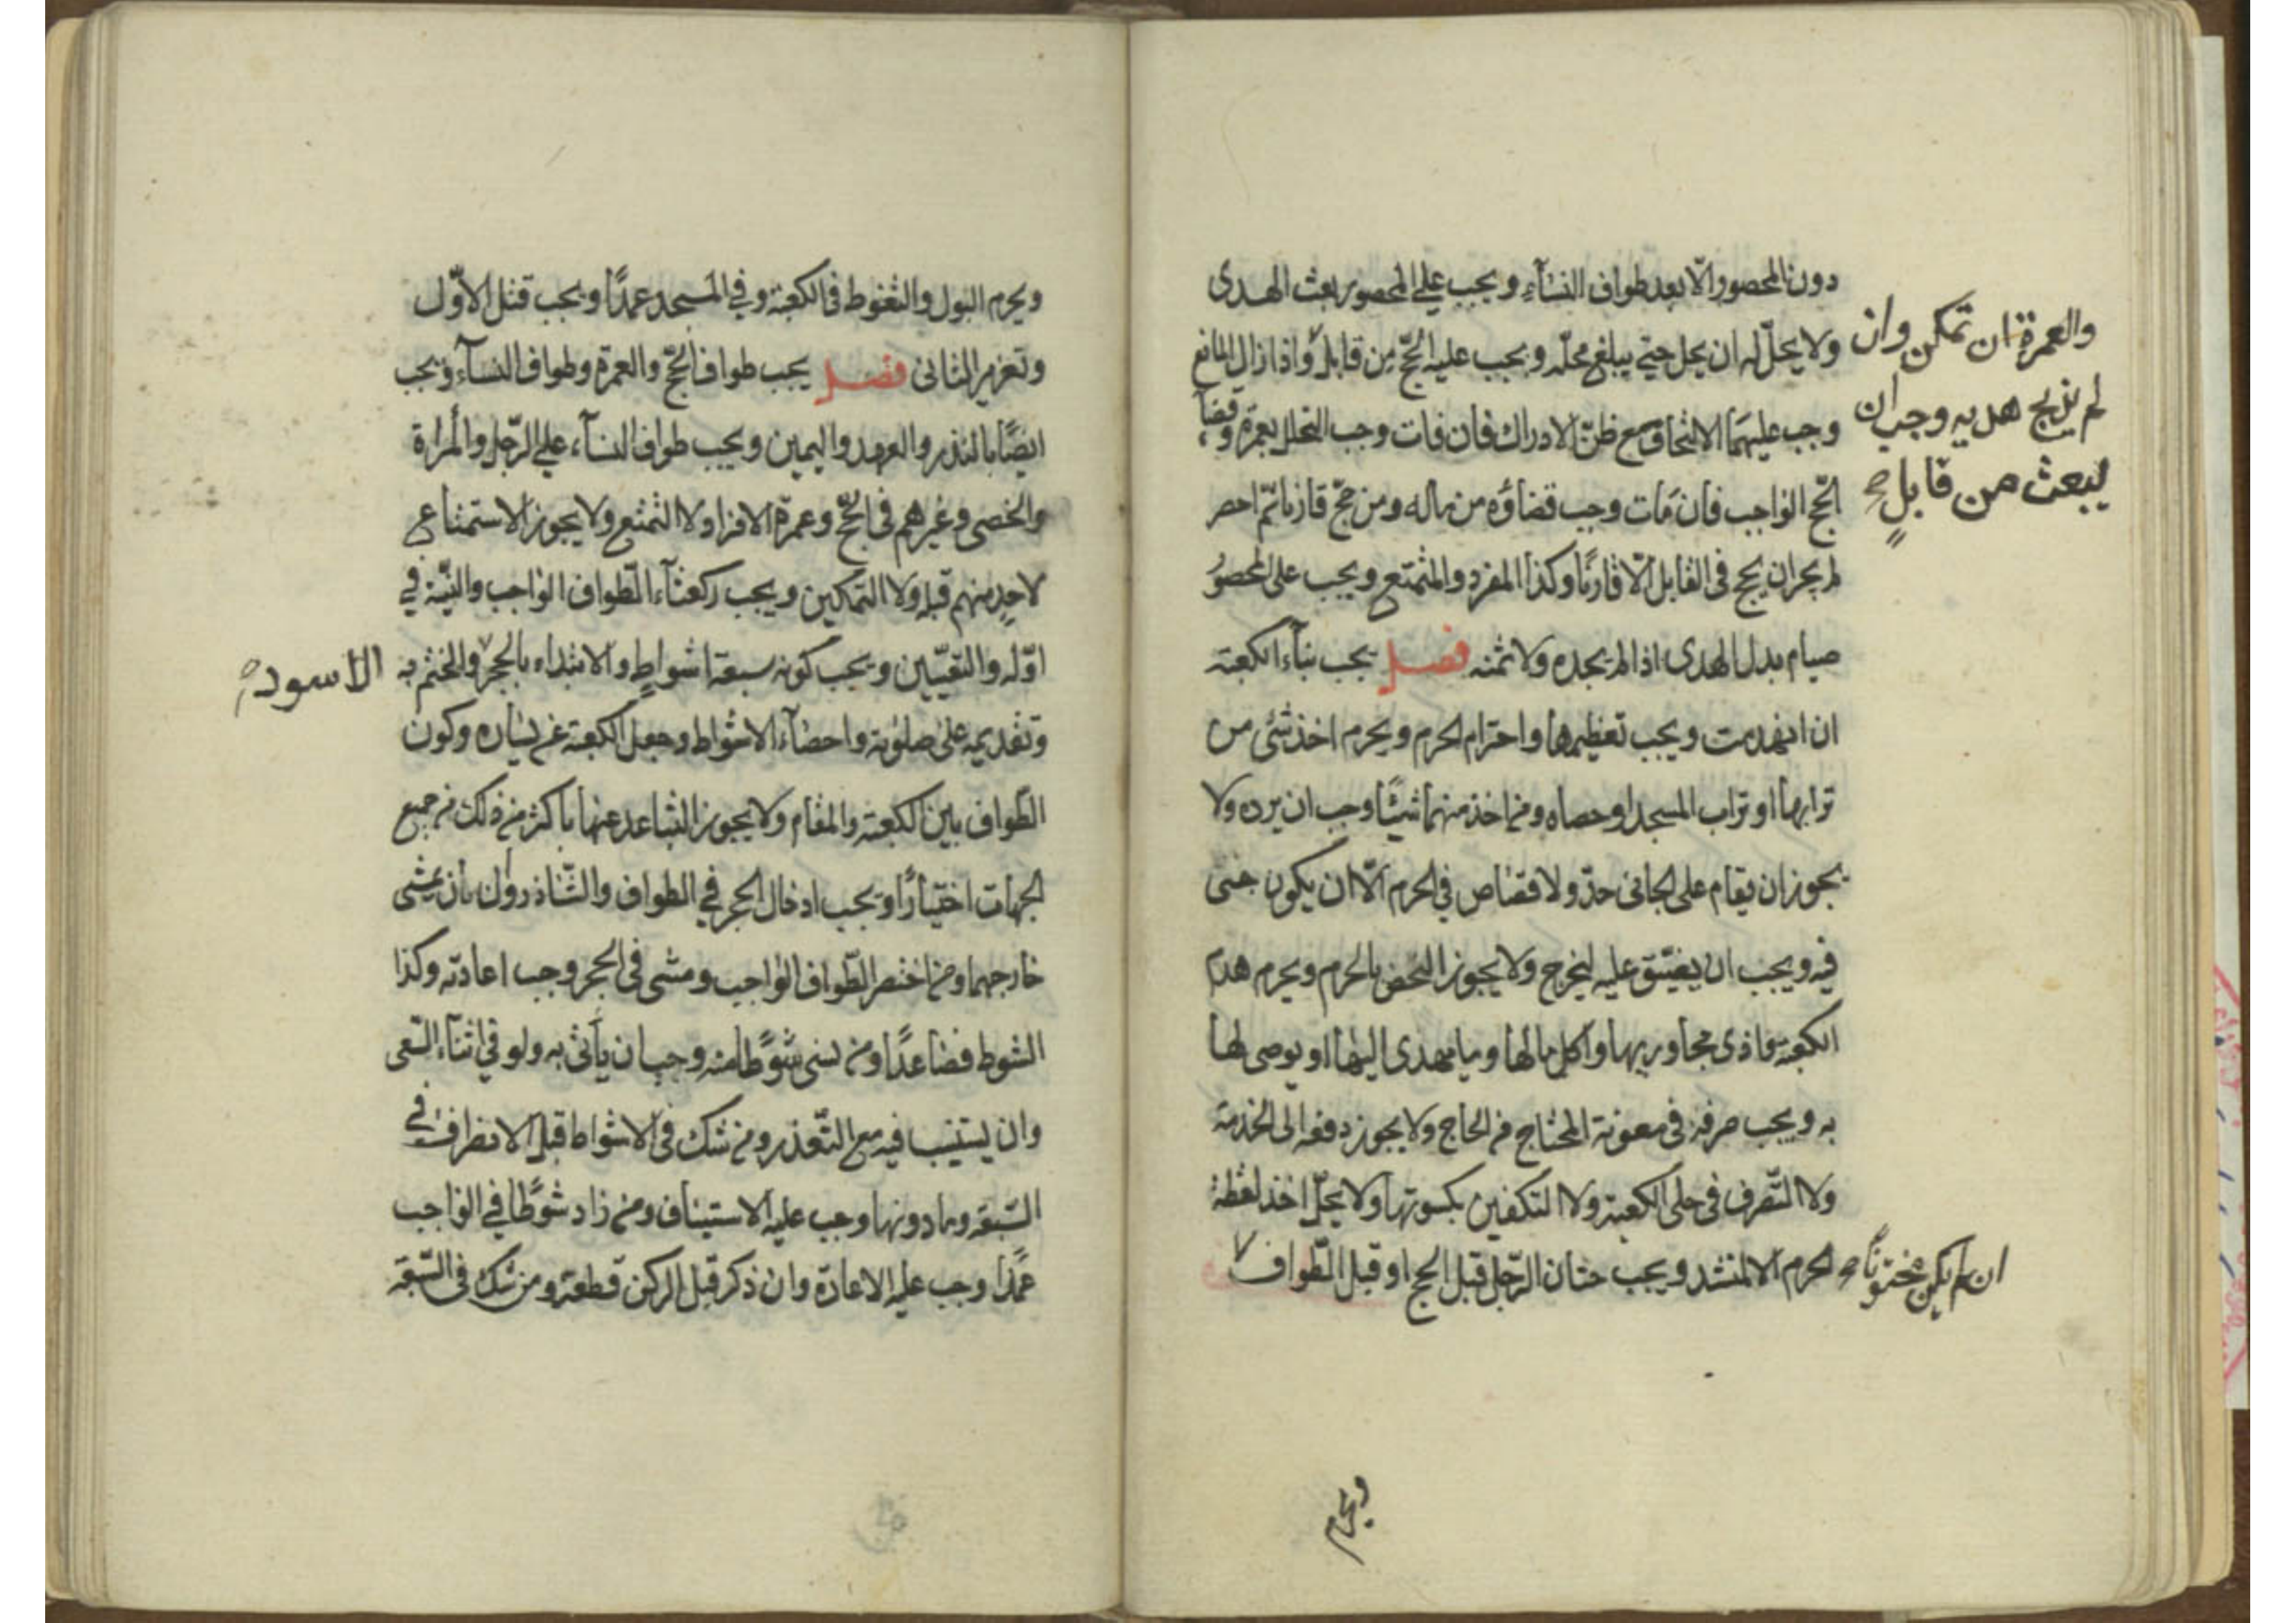 دون المحصور الّا بعد طواف النسآء ويجب على المحصور بعث الهدى
ولا يحلّ له ان يحل حتى يبلغ محلّه ويجب عليه الحجّ من قابل واذا زال المانع
والعمرة ان تمكن وان
لم يذبح هديه وجب ان
يبعث من قابلٍ صح
وجب عليهما الالتحاق مع ظنّ الادراك فان فات وجب التحلل بعمرة وقضآء
الحّج الواجب فان مات وجب قضاؤه من ماله ومن حجّ قارنا ثمّ احصر
لم يجز ان يحج فى القابل الّا قارنًا وكذا المفرد والمتمتع ويجب على المحصورُ
صيام بدل الهدى اذا لم يجده ولا ثمنه فصل يجب بنآء الكعبة
ان انهدمت ويجب تعظيمها واحترام الحرم ويحرم اخذ شئى من
ترابها او تراب المسجد او حصاه ومن اخذ منهما شيئًا وجب ان يرده ولا
يجوز ان يقام على الجانى حدّ ولا قصاص في الحرم الّا ان يكون جنى
فيه ويجب ان يضيّق عليه ليخرج ولا يجوز التحصّن بالحرم ويحرم هدم
الكعبة واذى مجاوريها واكل مالها وما يهدى اليها او يوصى لها
به ويجب صرفه فى معونة المحتاج من الحاج ولا يجوز دفعه الى الخدمة
ولا التّصرف فى حلى الكعبة ولا التكفين بكسوتها ولا يحلّ اخذ لقطة
الحرم الا لمنشد ويجب ختان الرّجل قبل الحج او قبل الطّواف
ان لم يكن مختونًا صح
ويحرم
ويحرم البول والتغوط في الكعبة وفي المسجد عمدًا ويجب قتل الاوّل
وتعزير الثانى فصل يجب طواف الحّج والعمرة وطواف النسآء ويجب
ايضًا بالنذر والعهد واليمين ويجب طواف النسآء على الرّجل والمرأة
والخصى وغيرهم فى الحّج وعمرة الافراد لا التمتع ولا يجوز الاستمتاع
لاحدٍ منهم قبله ولا التمكين ويجب ركعتاء الطّواف الواجب والنيّة في
اوّله والتعيّين ويجب كونه سبعة اشواطٍ والابتداء بالحجر والختم به
الاسود صح
وتقديمه على صلوته واحصآء الاشواط وجعل الكعبة عن يساره وكون
الطّواف بين الكعبة والمقام ولا يجوز التباعد عنها باكثر من ذلك من جميع
الجهات اختيارًا ويجب ادخال الحجر في الطواف والشّاذروان بان يمشى
خارجهما ومن اختصر الطّواف الواجب ومشى فى الحجر وجب اعادته وكذا
الشوط فصاعدًا ومن نسى شوطًا منه وجب ان يأتى به ولو في اثنآء السّعى
وان يستنيب فيه مع التّعذر ومن شك فى الاشواط قبل الانصراف في
السّبعة وما دونها وجب عليه الاستيناف ومن زاد شوطًا في الواجب
عمدًا وجب عليه الاعادة وان ذكر قبل الركن قطعه ومن شك فى السّبعة